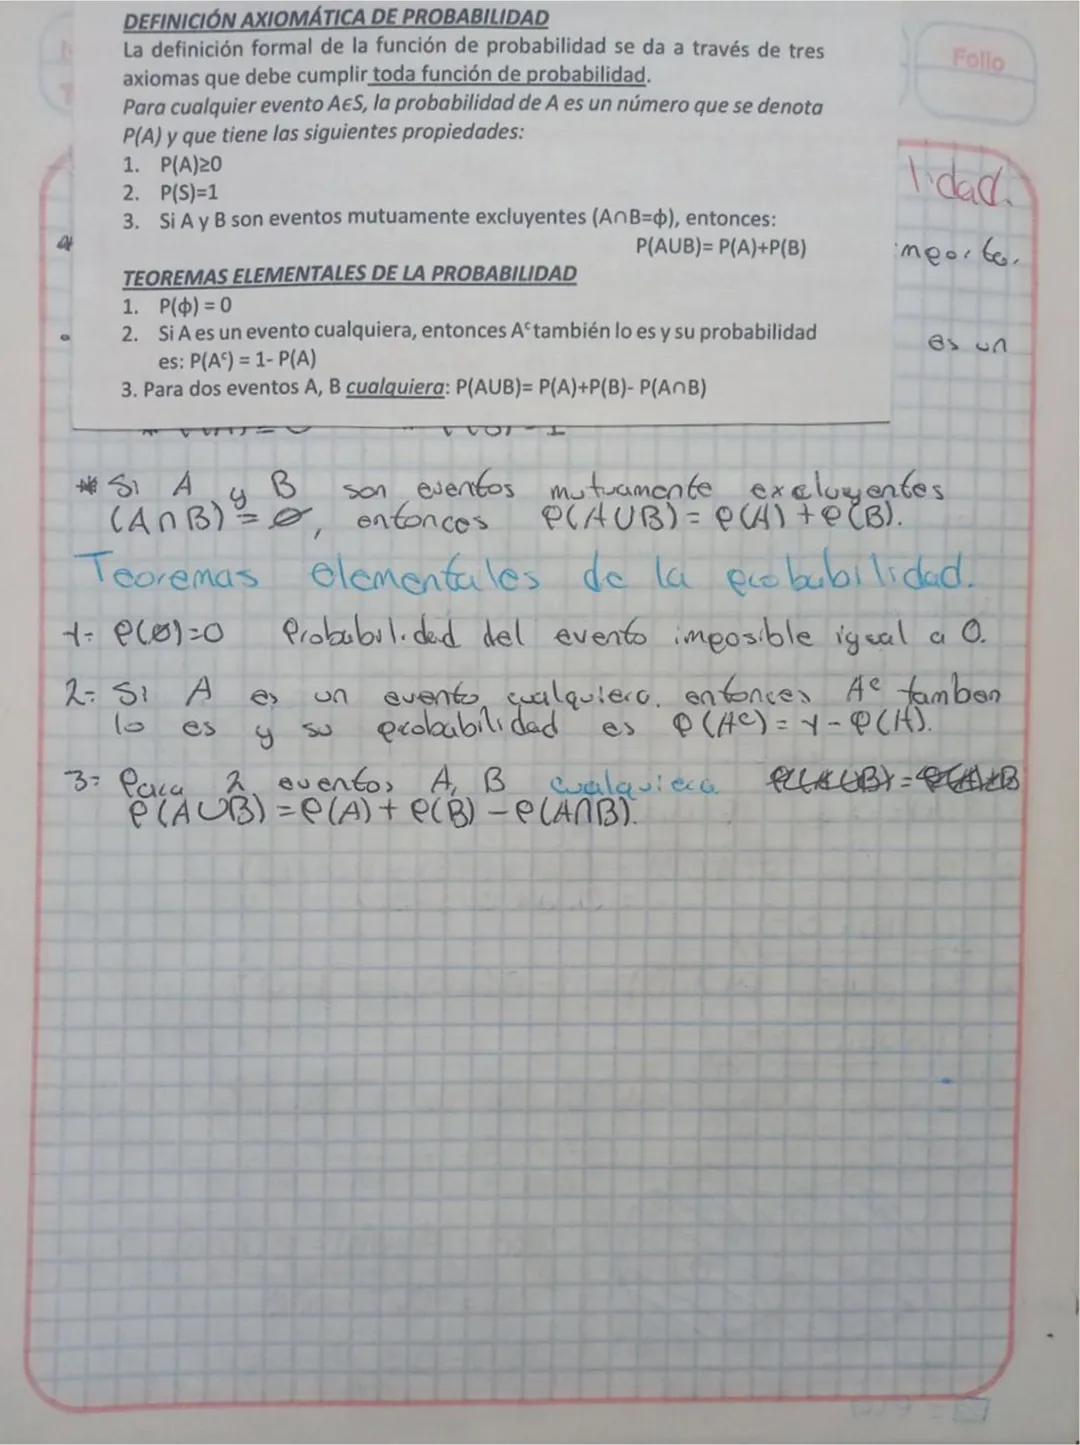 DEFINICIÓN AXIOMÁTICA DE PROBABILIDAD
La definición formal de la función de probabilidad se da a través de tres
axiomas que debe cumplir toda función de probabilidad.
Para cualquier evento AЄS, la probabilidad de A es un número que se denota
P(A) y que tiene las siguientes propiedades:
1. P(A)≥0
2. P(S)=1
3. Si A y B son eventos mutuamente excluyentes (A∩B=ф), entonces:
P(AUB)= P(A)+P(B)
TEOREMAS ELEMENTALES DE LA PROBABILIDAD
1. P(ф) = 0
2. Si A es un evento cualquiera, entonces Aᶜ también lo es y su probabilidad
es: P(Aᶜ) = 1- P(A)
3. Para dos eventos A, B cualquiera: P(AUB)= P(A)+P(B)- P(A∩B)
Folio
lidad.
es un
* Si A y B son eventos mutuamente excluyentes
(A∩B) = ∅, entonces P(AUB) = P(A) + P(B).
Teoremas elementales de la probabilidad.
1- P(∅)=0 Probabilidad del evento imposible igual a 0.
2- Si A es un evento cualquiera, entonces Aᶜ tamben
lo es y su probabilidad es P(Aᶜ) = 1 - P(A).
3- Para 2 eventos A, B cualquiera
P(AUB) = P(A) + P(B) - P(A∩B).